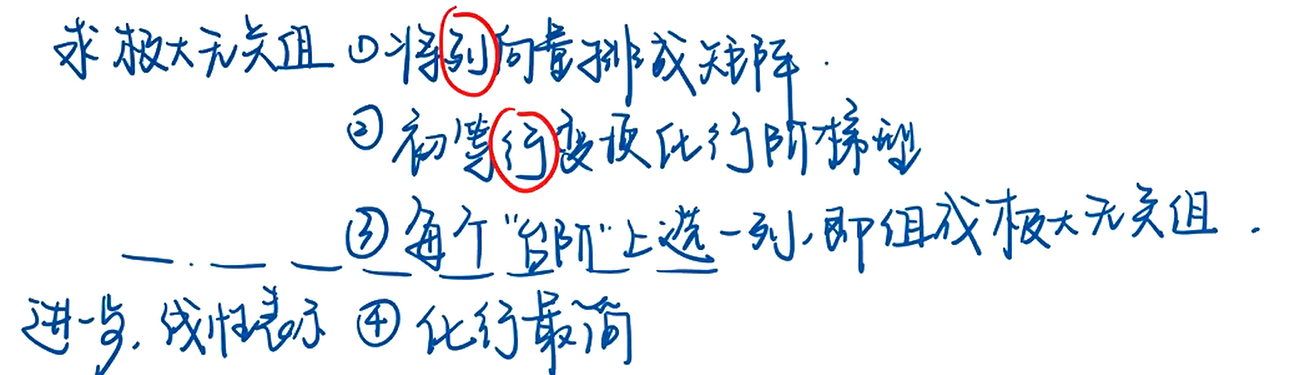 求极大无关组 ①将列向量排成矩阵.
②初等行变换化行阶梯型
③每个"台阶"上选一列,即组成极大无关组.
进一步,线性表示 ④化行最简